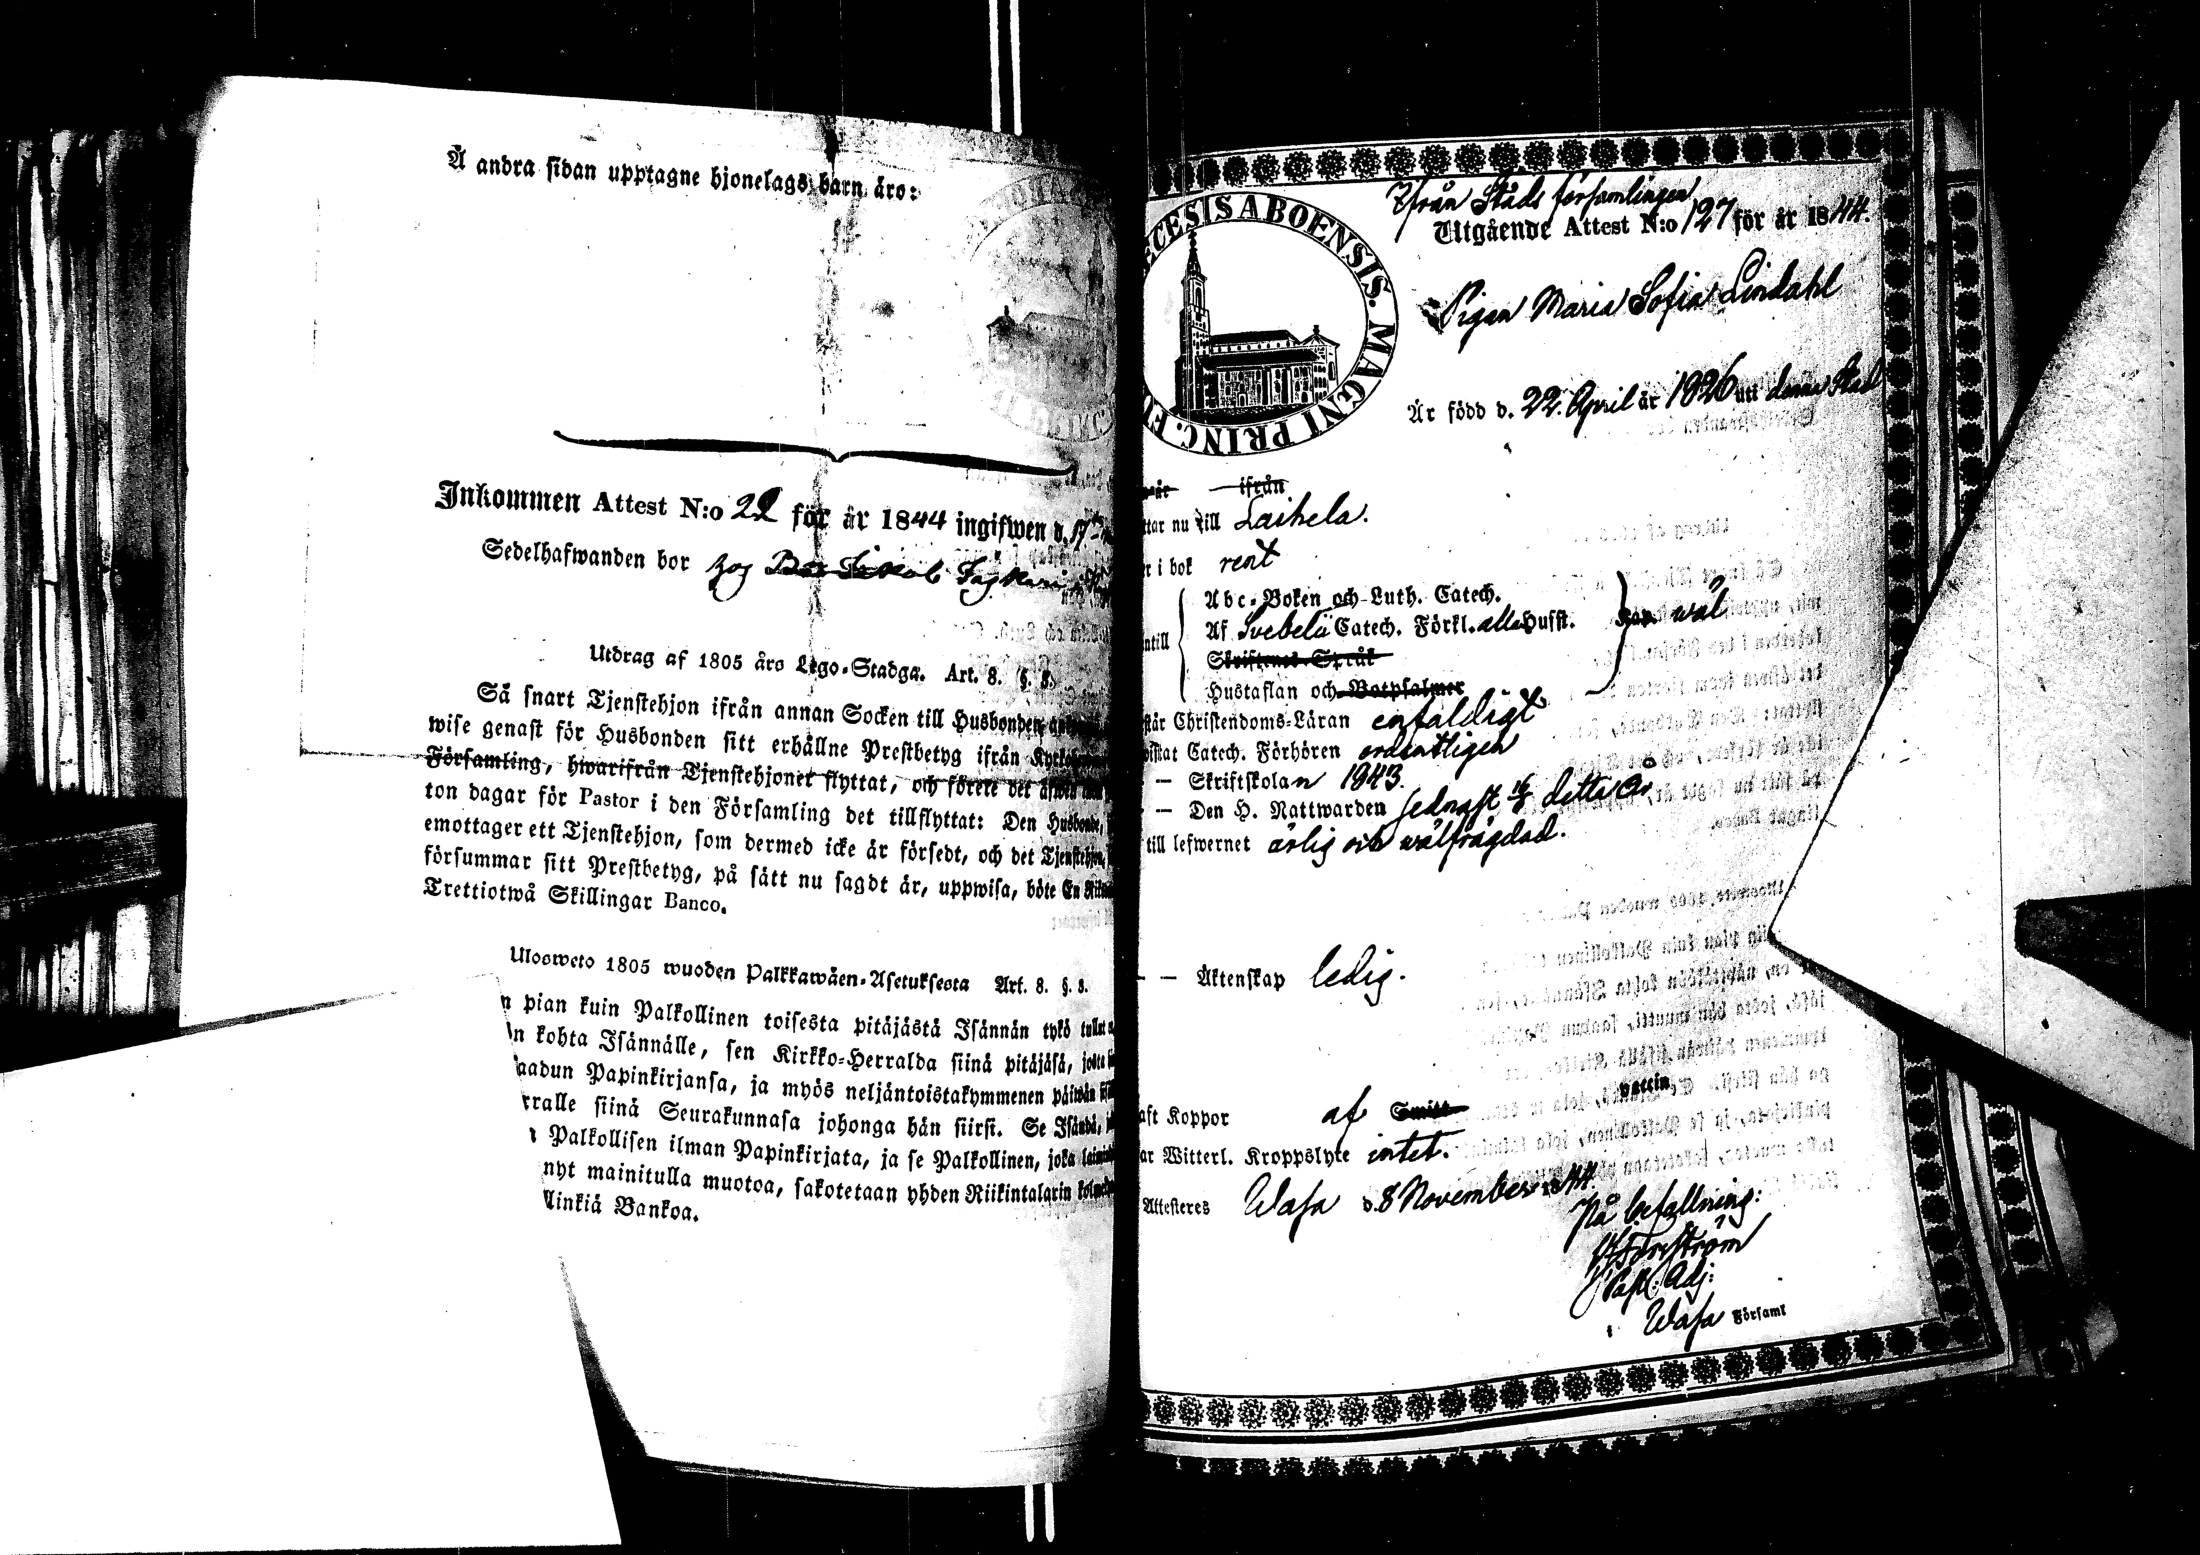 Å andra sidan upptagne hjonelags barn äro:
Inkommen Attest N:o 22 för år 1844 ingifwen d. 17
Sedelhafwanden bor hog
Utdrag af 1805 års Lego-Stadga. Art. 8. §. 8.
Så snart Tjenstehjon ifrån annan Socken till Husbonden
wise genast för Husbonden sitt erhållne Prestbetyg ifrån
Församling, hwarifrån Tjenstehjonet flyttat, och förete det äfwen
ton dagar för Pastor i den Församling det tillflyttat: Den Husbonde,
emottager ett Tjenstehjon, som dermed icke är försedt, och det Tjenstehjon,
försummar sitt Prestbetyg, på sätt nu sagdt är, uppwisa, böte En
Trettiotwå Skillingar Banco.
Uloswetö 1805 wuoden Palkkawäen-Asetuksesta Art. 8. §. 8.
n pian kuin Palkollinen toisesta pitäjästä Isännän tykö tullut
n kohta Isännälle, sen Kirkko-Herralda siinä pitäjäsä, josta
aadun Papinkirjansa, ja myös neljäntoistakymmenen päiwän
rralle siinä Seurakunnasa johonga hän siirsi. Se Isändä,
Palkollisen ilman Papinkirjata, ja se Palkollinen, joka
nyt mainitulla muotoa, sakotetaan yhden Riikintalarin
linkiä Bankoa.
ECESIS ABOENSIS. MAGNI PRINC. F
Ifrån Stads församlingen
Utgående Attest N:o 127 för år 1844.
Pigan Maria Sofia Lindahl
Är född d. 22. April år 1826 uti denna Stad
år ifrån
ttar nu till Laihela.
r i bok rent
Abc-Boken och Luth. Catech.
Af Svebelii Catech. Förkl. alla Husst. wäl
ntill
Skriftenes Språk
Hustaflan och Botpsalmer
står Christendoms-Läran enfaldigt
istat Catech. Förhören ordentligen
— Skriftskolan 1843.
— Den H. Nattwarden sednast detta år
till lefwernet ärlig och wälfrägdad.
— — Äktenskap ledig.
vaccin
aft Koppor af Smitt
ar Witterl. Kroppslyte intet.
Attesteres Wasa d. 8 November 1844.
På befallning:
Past. Adj:
i Wasa Församl